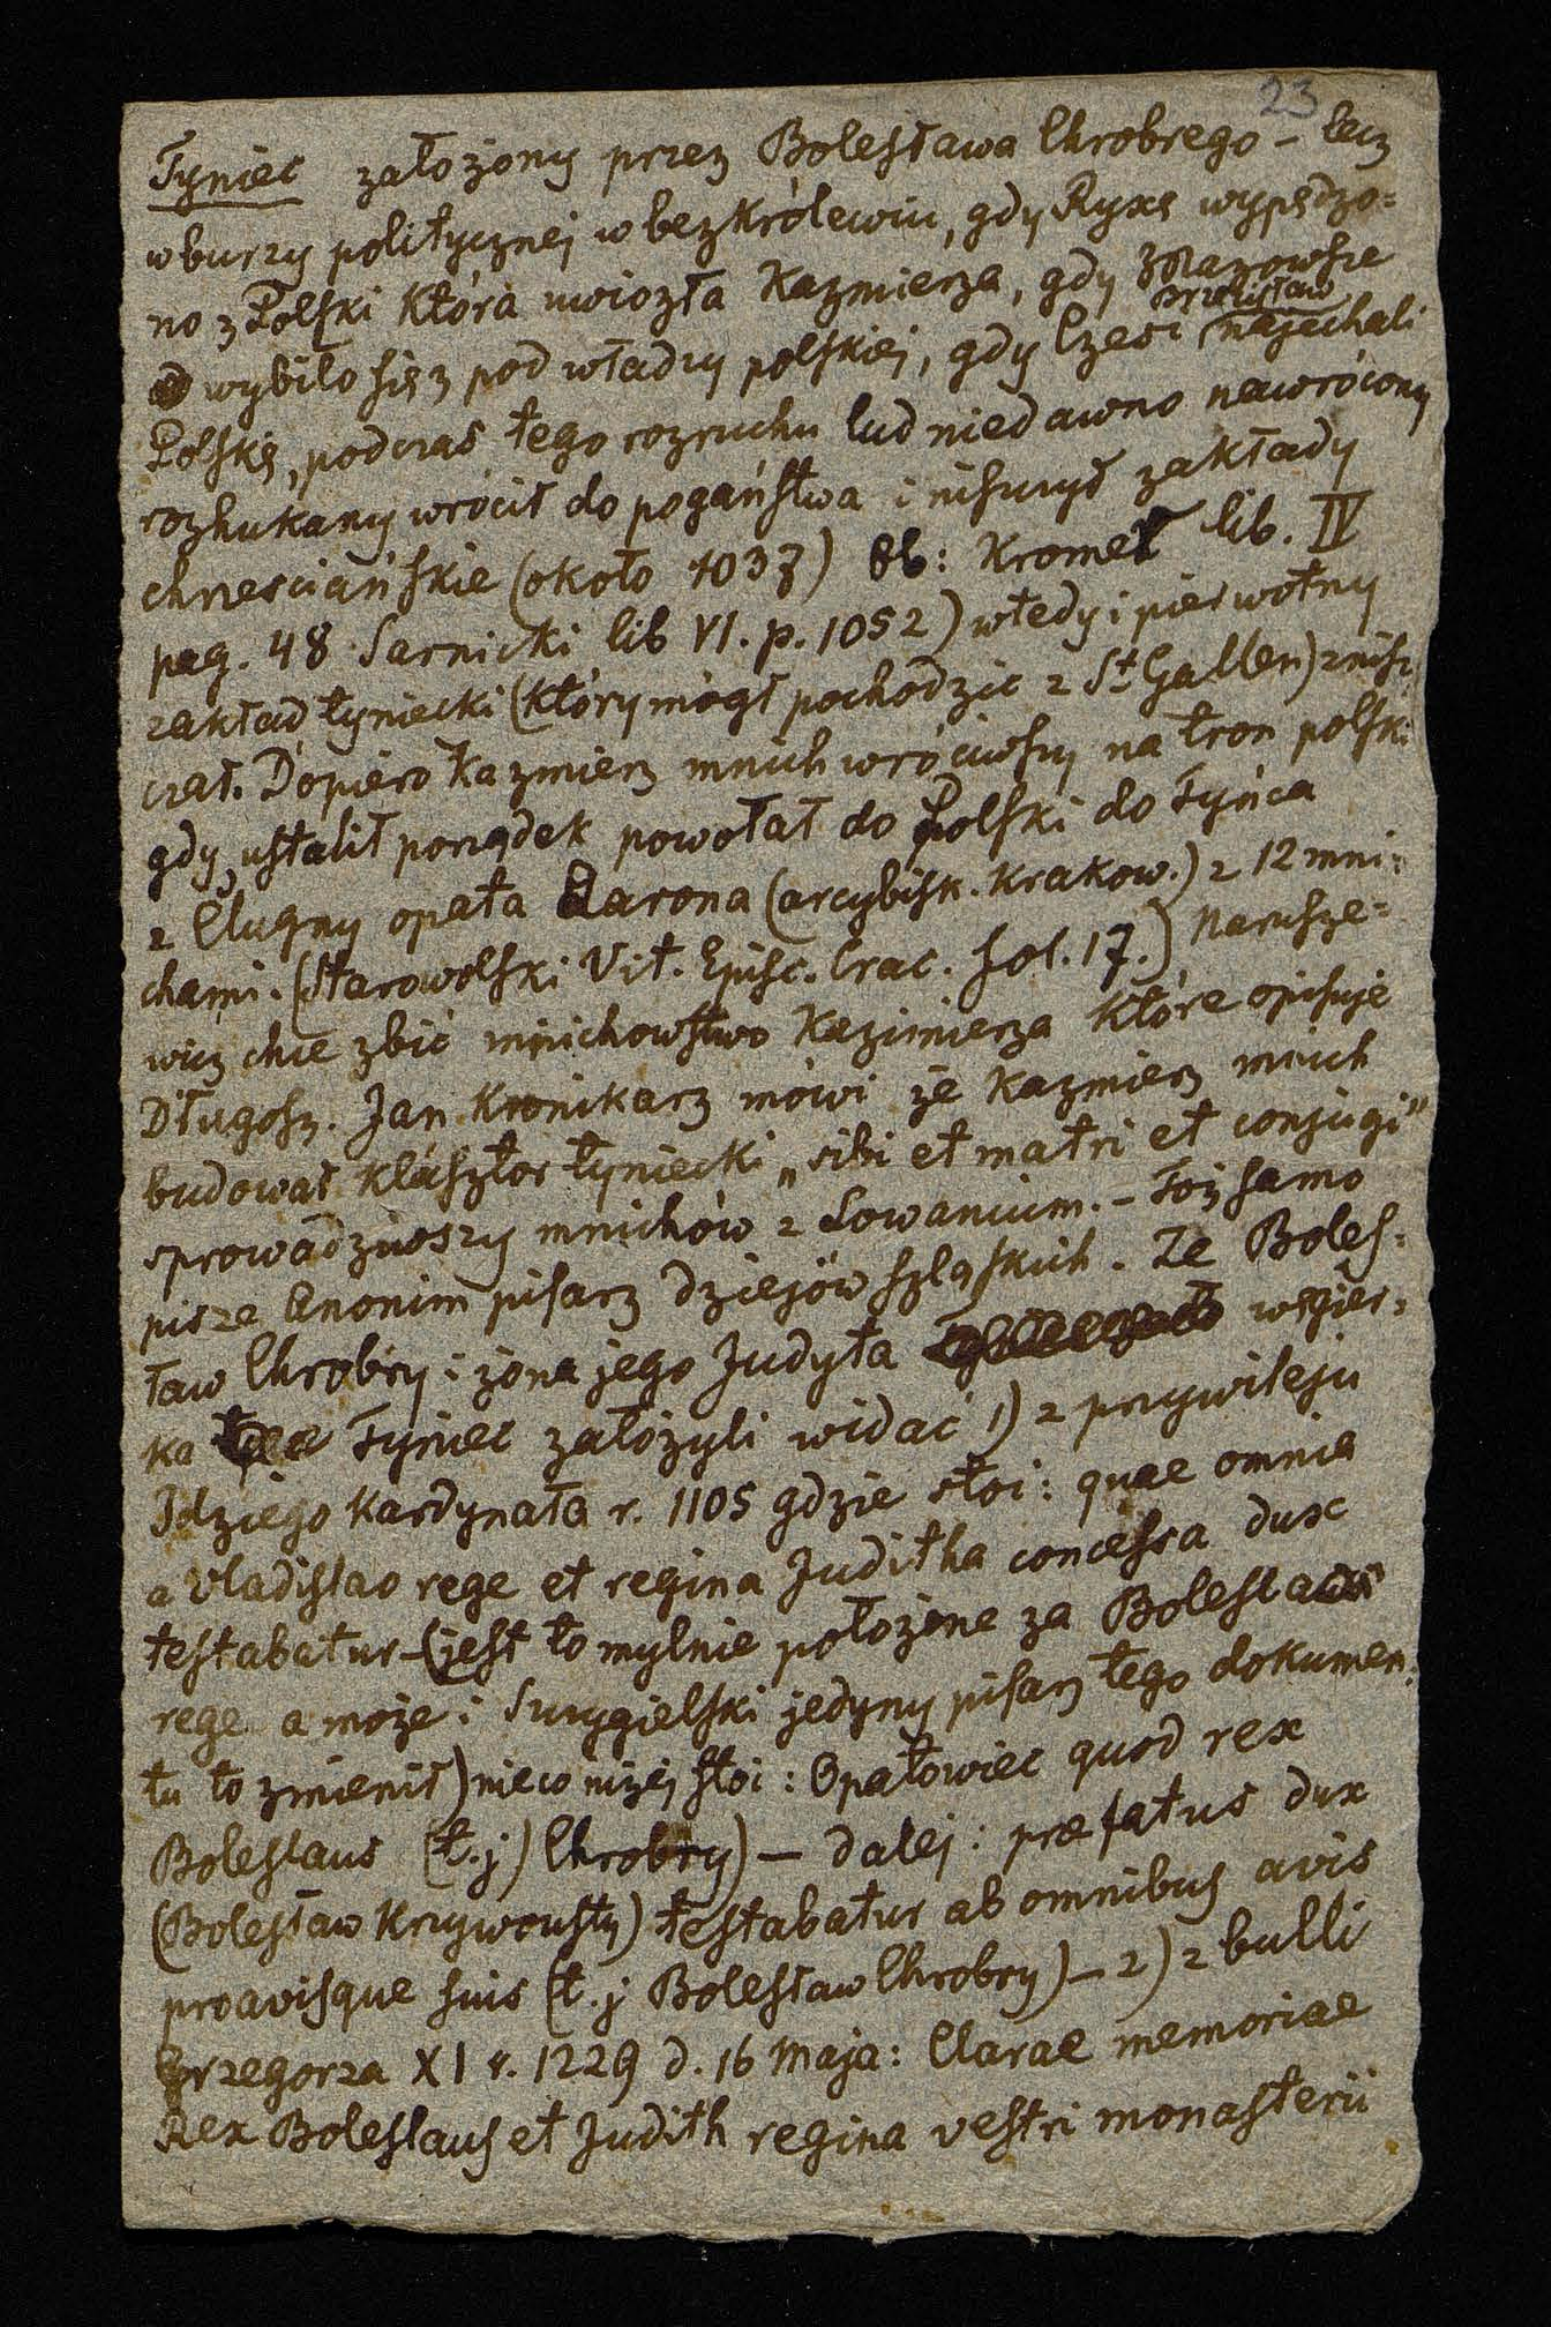 23
Tyniec założony przez Bolesława Chrobrego – lecz
w burzy politycznej w bezkrólewiu, gdy Ryxę wypędzo=
no z Polski która uwiozła Kazmierza, gdy Mazowsze
wybiło się z pod władzy polskiej, gdy Czesi Brzetisław najechali
Polskę, podczas tego rozruchu lud niedawno nawrócony
rozhukany wrócił do pogaństwa i niszczył zakłady
chrześciańskie (około 1037) Ob: Kromer lib. IV
pag. 48 Sarnicki lib VI. p. 1052) wtedy i pierwotny
zakład tyniecki (który mógł pochodzić z St Gallen) znisz=
czał. Dopiero Kazmierz mnich wróciwszy na tron polski
gdy ustalił porządek powołał do Polski do Tyńca
z Clugny opata Aarona (arcybisk. Krakow.) z 12 mni=
chami. (Starowolski Vit. Episc. Crac. fol. 17.) Narusze=
wicz chce zbić mnichowstwo Kazimierza które opisuje
Długosz. Jan Kronikarz mówi że Kazmierz mnich
budował klasztor tyniecki „sibi et matri et conjugi"
sprowadziwszy mnichów z Lowanium. – Toż samo
pisze Anonim pisarz dziejów szląskich. Że Boles=
ław Chrobry i żona jego Judyta węgier=
ka Tyniec założyli widać 1) z przywileju
Idziego Kardynała r. 1105 gdzie stoi: quae omnia
a Vladislao rege et regina Juditha concessa dux
testabatur – (jest to mylnie położone za Boleslao
rege a może i Szczygielski jedyny pisarz tego dokumen=
tu to zmienił) nieco niżej stoi: Opatowiec quod rex
Boleslaus (t.j) Chrobry) – dalej: praefatus dux
(Bolesław Krzywousty) testabatur ab omnibus avis
proavisque suis (t.j Bolesław Chrobry) – 2) z bulli
Grzegorza XI r. 1229 d. 16 Maja: Clarae memoriae
Rex Boleslaus et Judith regina vestri monasterii